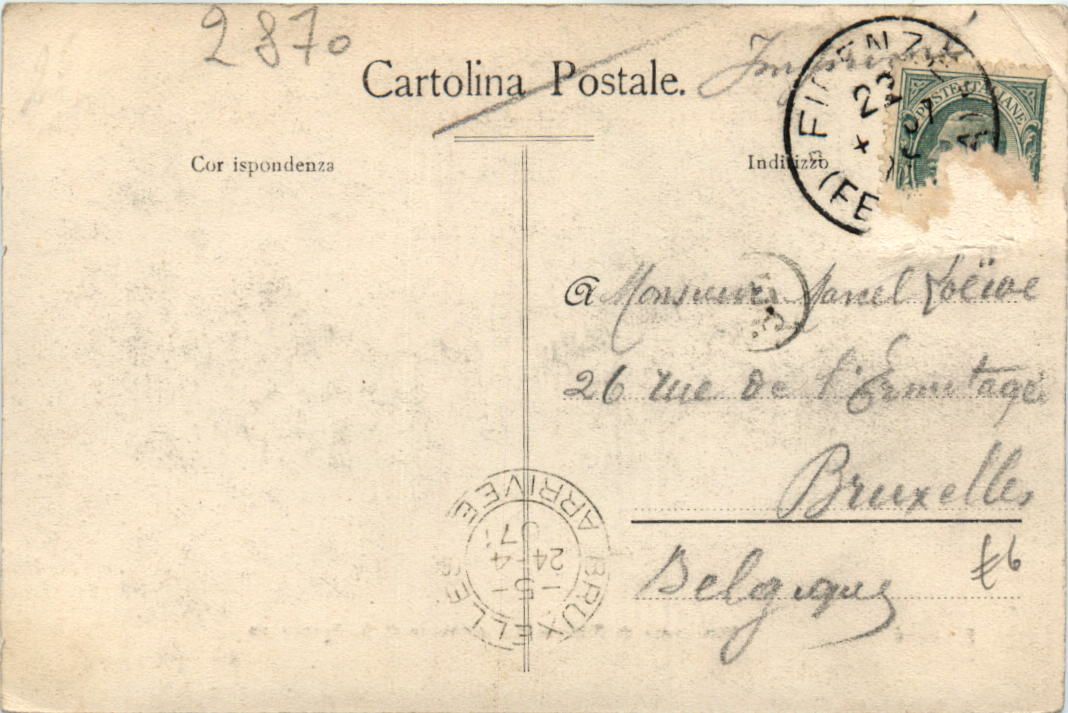 2870
Imprimé
Cartolina Postale.
Cor ispondenza
Indirizzo
FIRENZE
(FE
POSTE ITALIANE
a Monsieur Marcel Loëwe
26 rue de l'Ermitage
Bruxelles
Belgique
£6
BRUXELLES
ARRIVEE
24-4
07